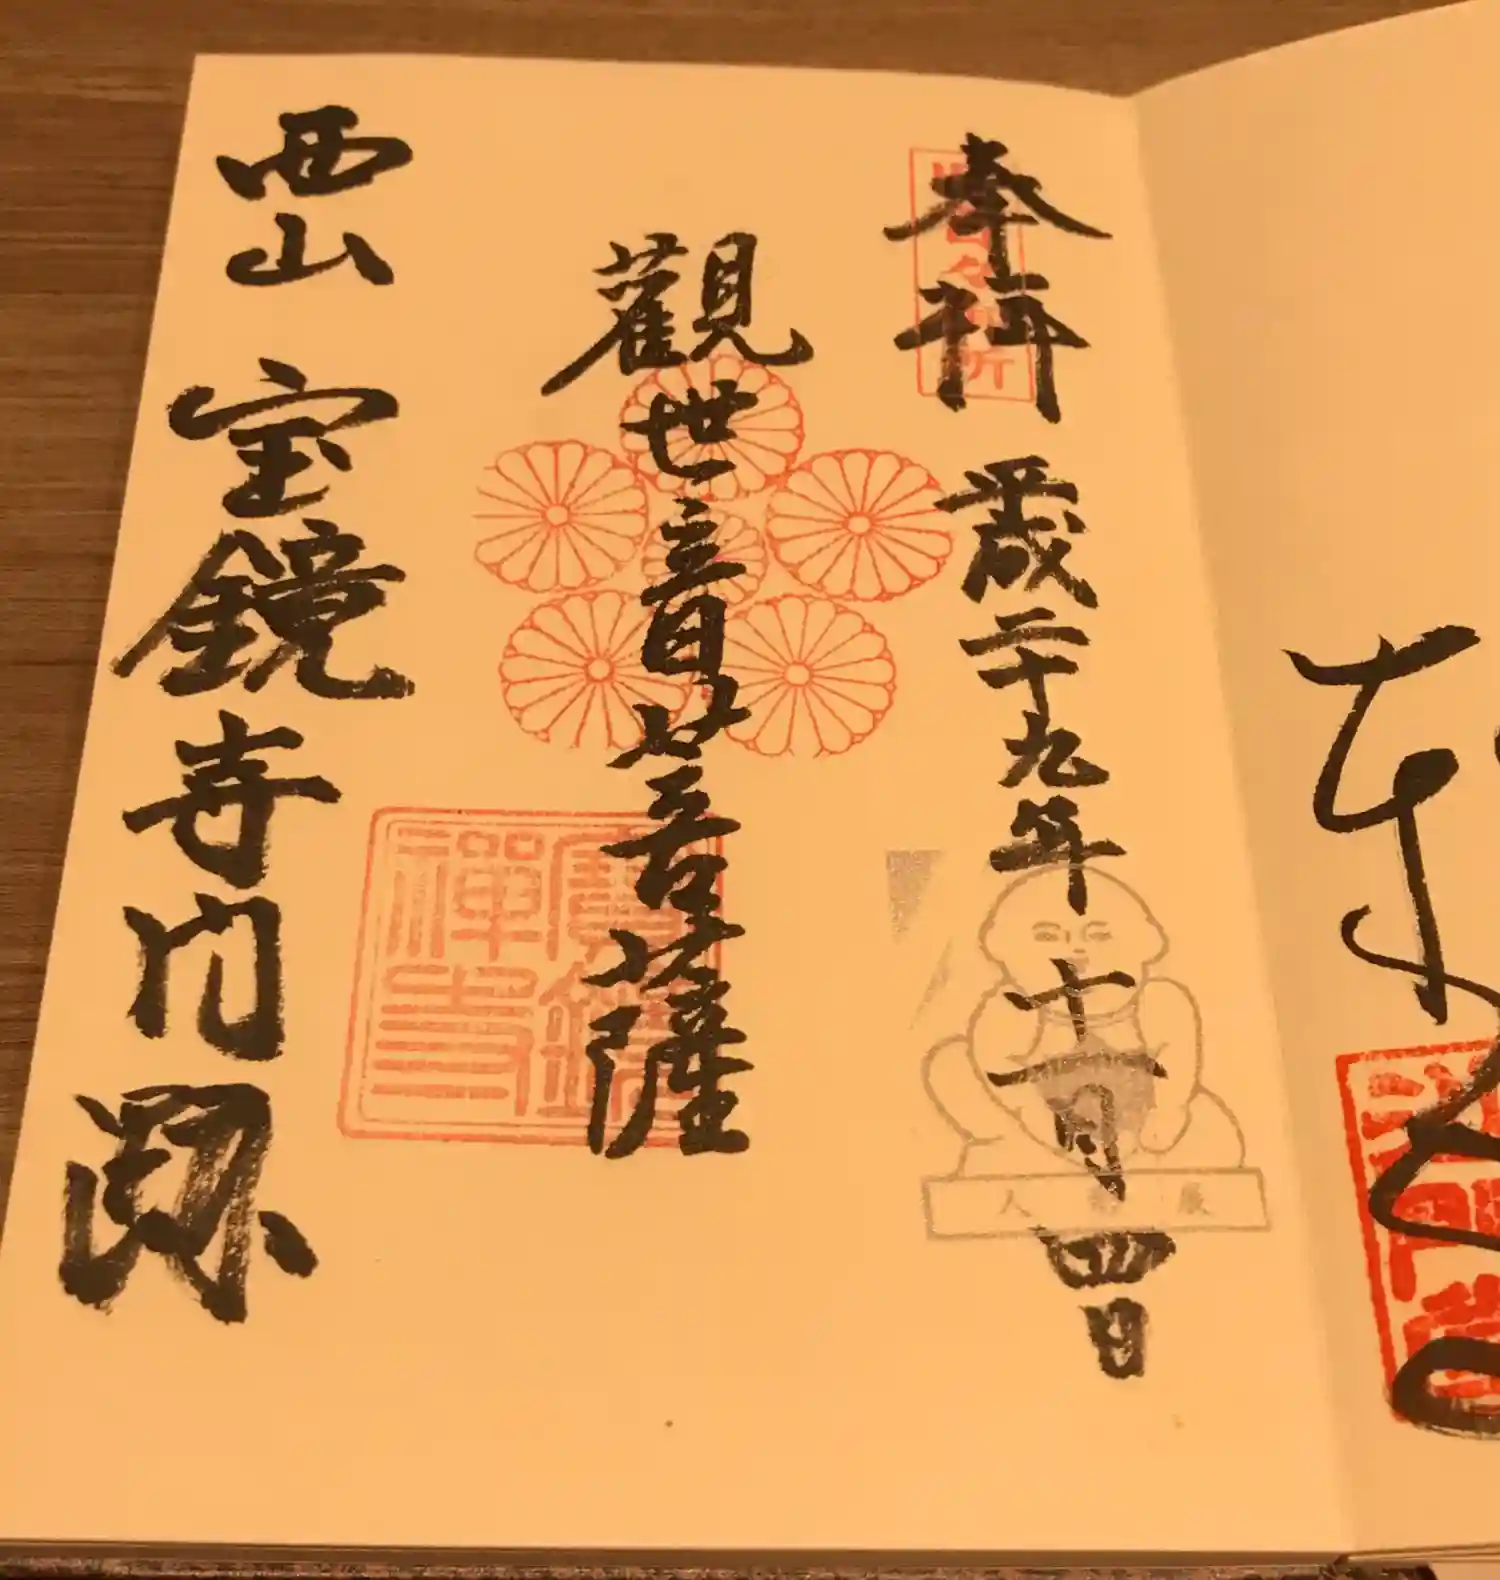 奉拝
平成二十九年十一月四日
觀世音菩薩
西山 宝鏡寺門跡
寶鏡
禪寺